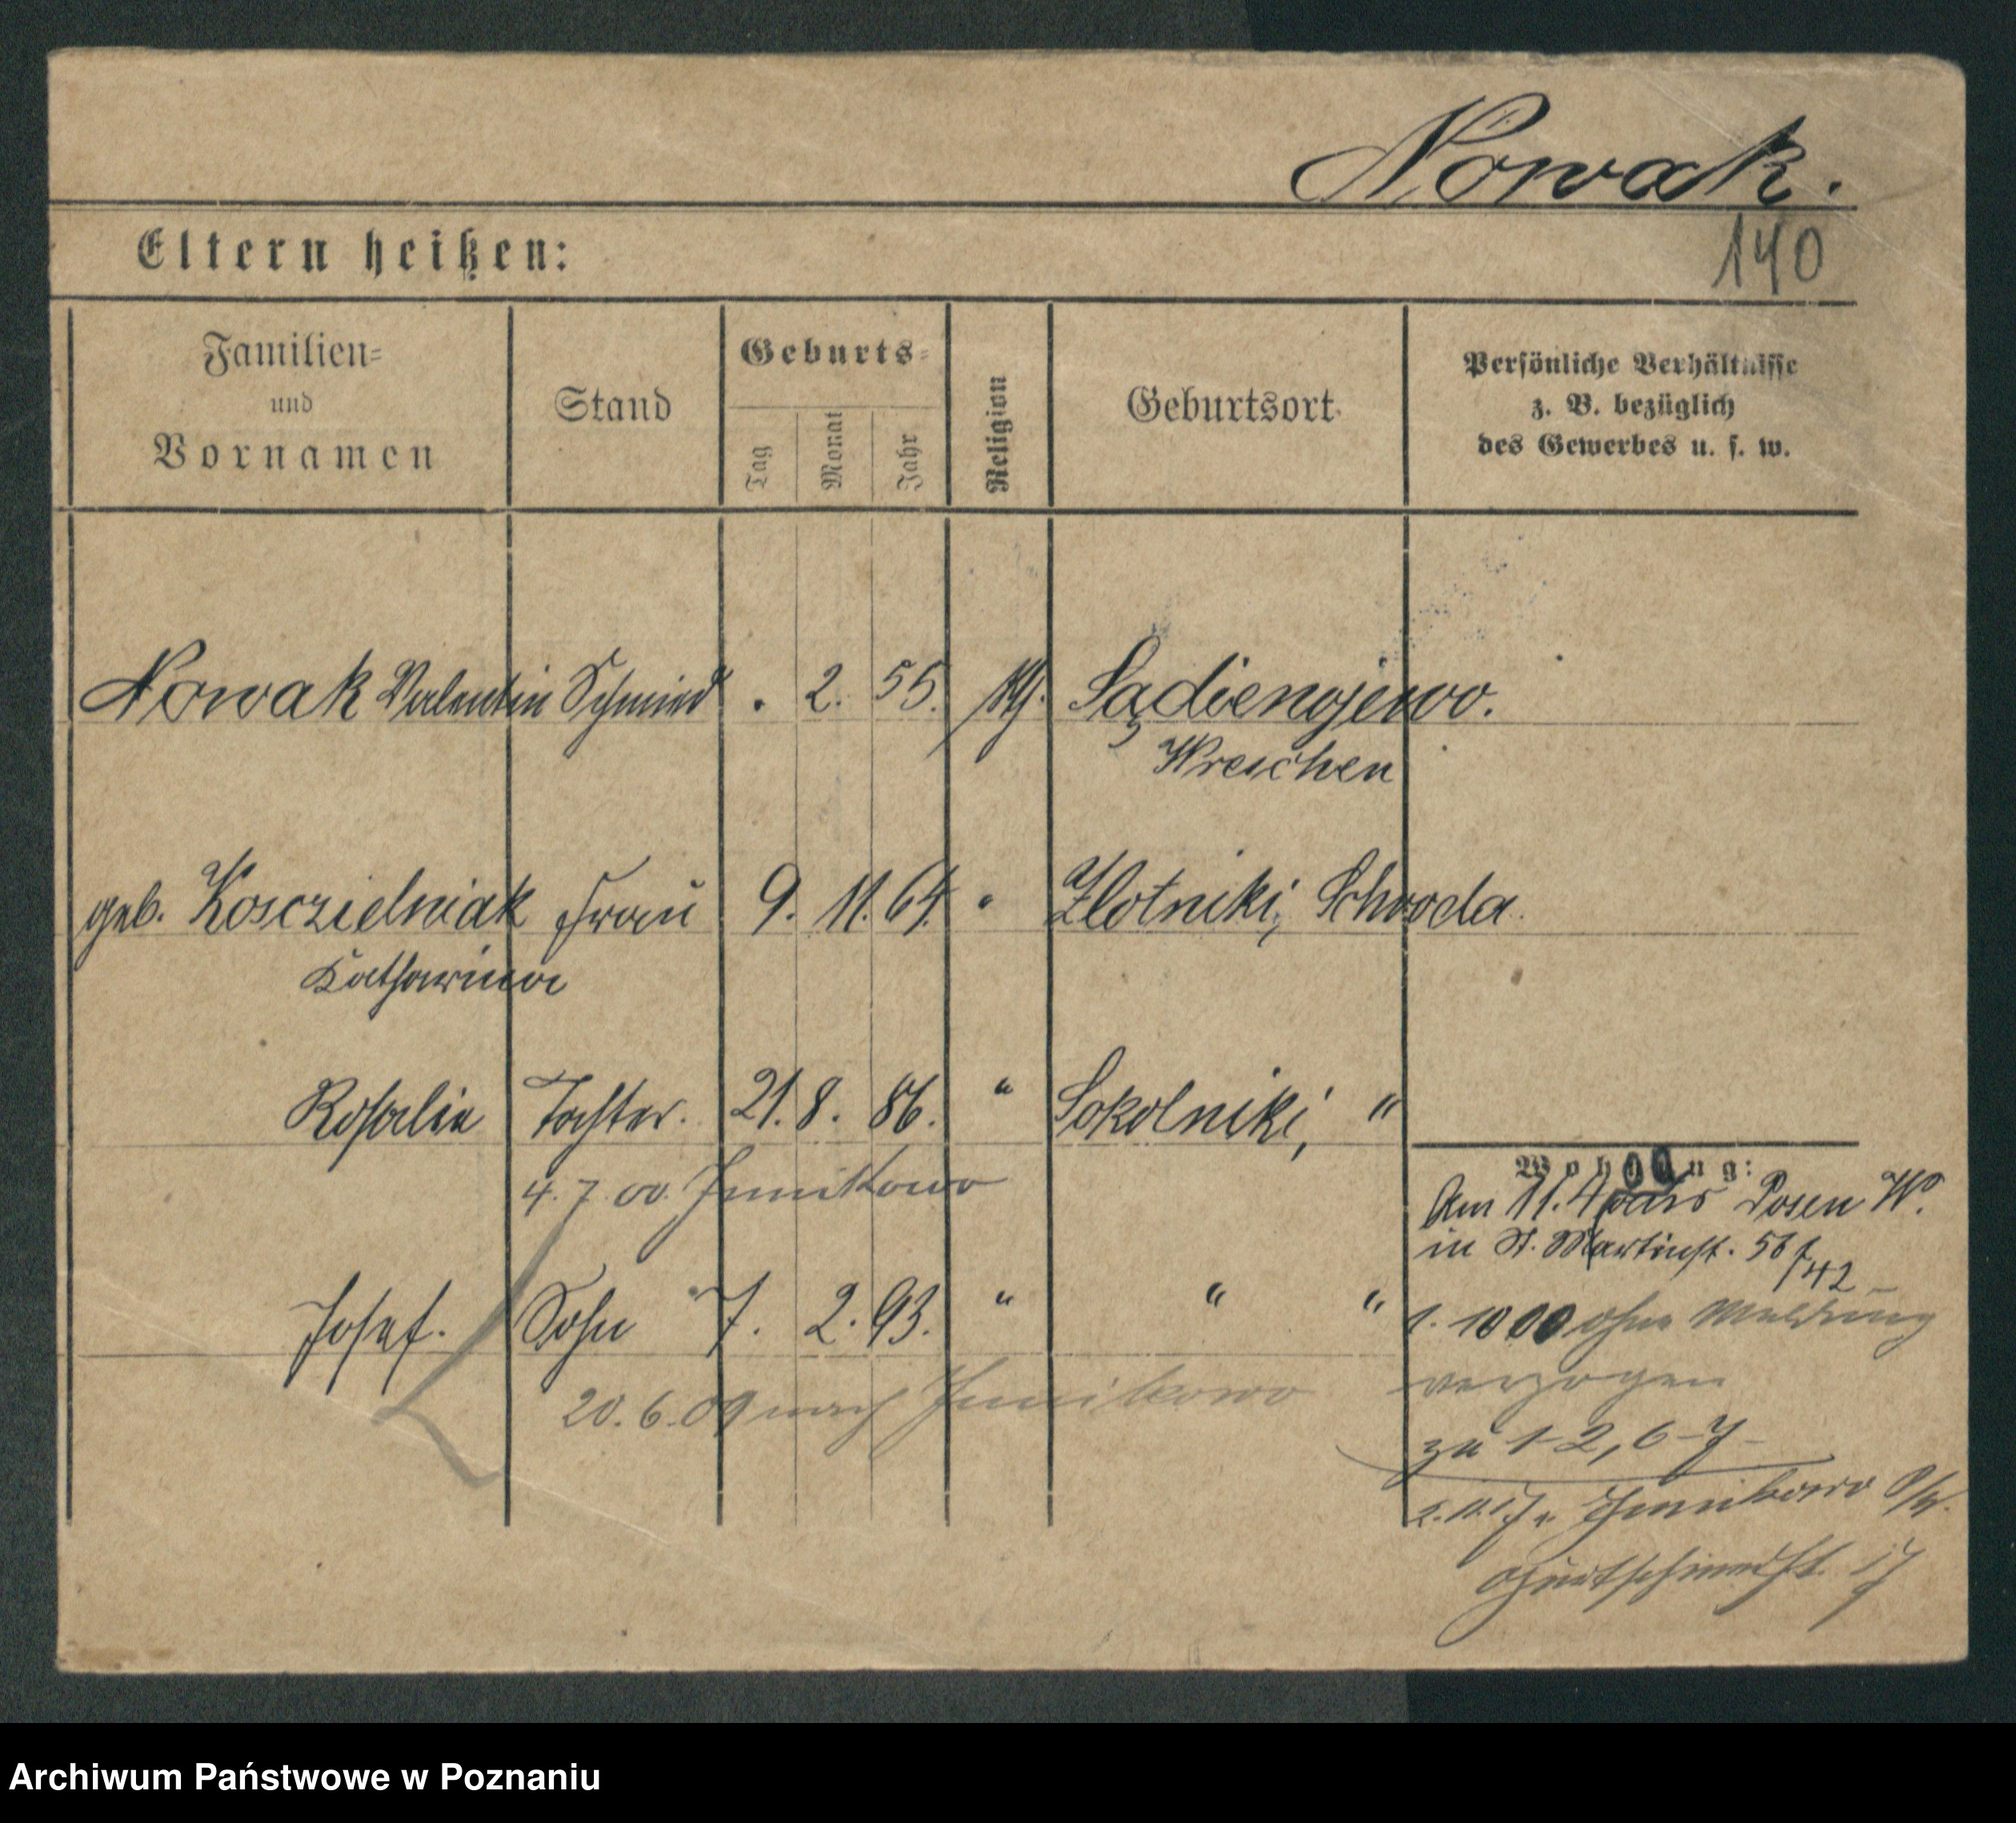 Nowak.
140
Eltern heißen:
Familien-
und
Vornamen
Stand
Geburts-
Tag
Monat
Jahr
Religion
Geburtsort
Persönliche Verhältnisse
z. B. bezüglich
des Gewerbes u. s. w.
Nowak Valentin Schmied . 2. 55.
Wreschen
geb. Kosczielniak Frau 9. 11. 64. " Zlotniki, Schroda.
Katharina
Rosalie Tochter. 21. 8. 86. " Sokolniki, "
4. 7. 00. Junikowo
Wohnung:
Am 11. 4 00 aus Posen W.
in St. Martinst. 56
42
Josef. Sohn 7. 2. 93. " " "
1. 10 00 ohne Meldung
verzogen
20. 6. 09 nach Junikowo
zu 1-2, 6-7
Junikowo
17
Archiwum Państwowe w Poznaniu